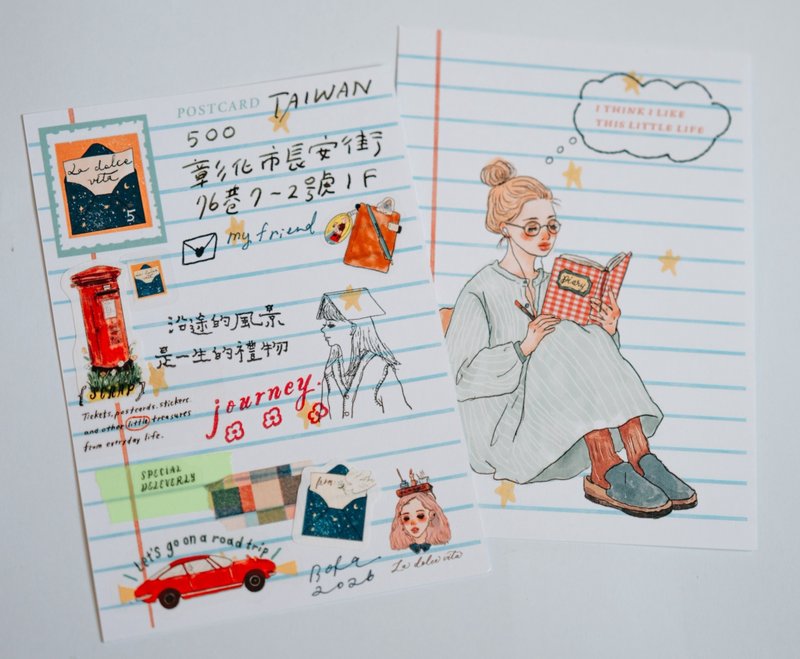 POSTCARD TAIWAN
500
彰化市長安街
76巷7-2號1F
La dolce
vita
5
my friend
沿途的風景
是一生的禮物
{SCRAP}
Tickets, postcards, stickers
and other little treasures
from everyday life.
journey.
SPECIAL
DELEVERLY
Let's go on a road trip
2026
La dolce vita
I THINK I LIKE
THIS LITTLE LIFE
Diary